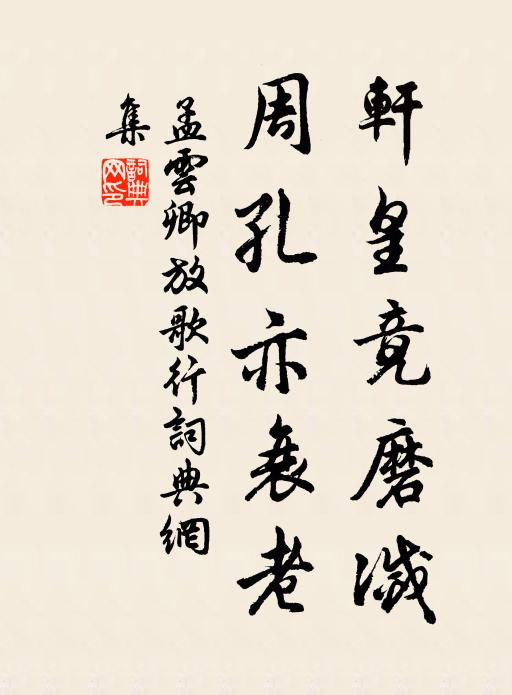 軒皇竟磨滅
周孔亦衰老
孟雲卿放歌行詞典網
集
詞典
网印